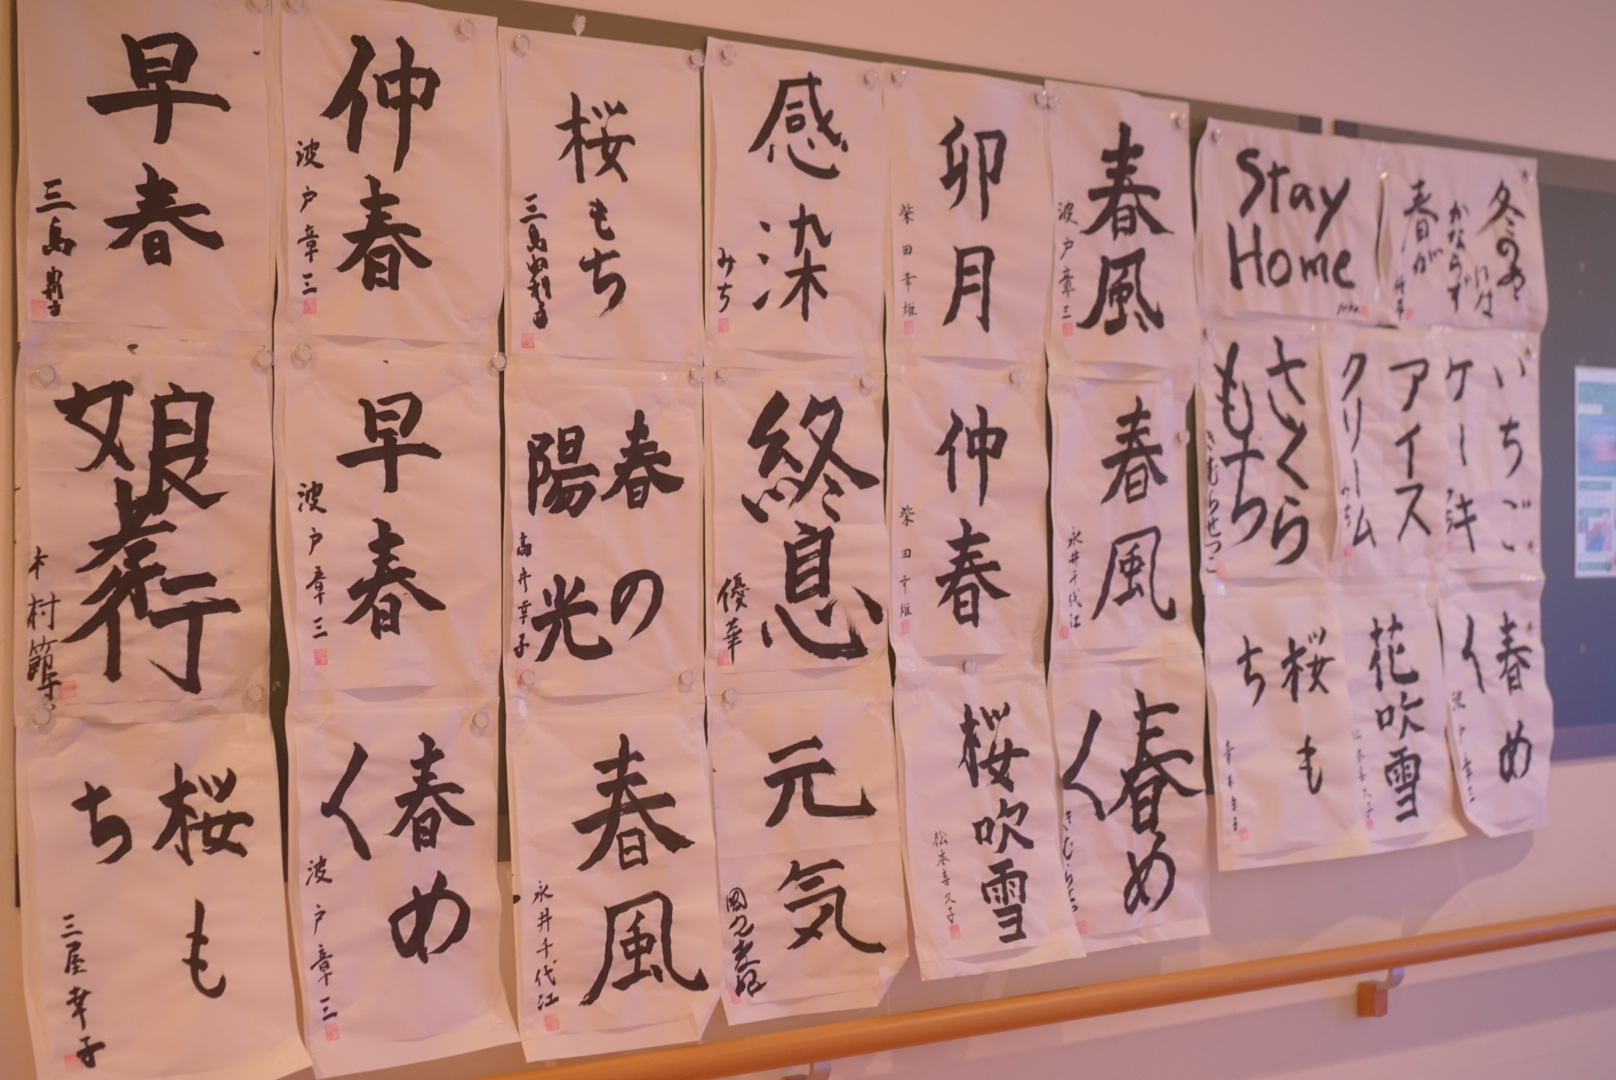 早春
仲春
波戸章三
桜もち
感染
みち
卯月
柴田幸雄
春風
波戸章三
Stay
Home
冬のあとには
かならず
春が
娘孝行
木村節子
早春
波戸章三
春の
陽光
高井幸子
終息
優華
仲春
柴田幸雄
春風
永井千代江
さくら
もち
きむらせつこ
アイス
クリーム
みち
いちご
ケーキ
桜も
ち
三屋幸子
春め
く
波戸章三
春風
永井千代江
元気
桜吹雪
松本喜久子
春め
く
桜も
ち
花吹雪
松本喜久子
春め
く
波戸章三